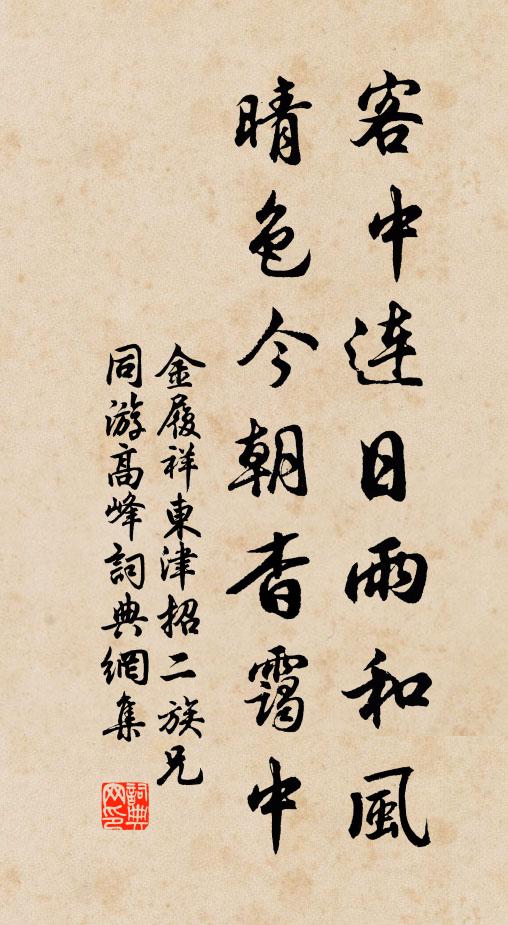 客中连日雨和風
晴色今朝杳靄中
金履祥東津招二族兄
同游高峰詞典網集
詞典网印